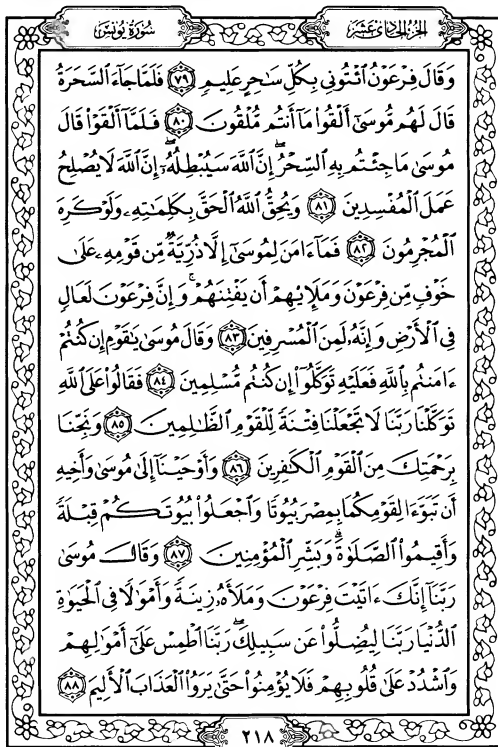 سُورَةُ يُونُسَ
الجُزْءُ الحَادِي عَشَرَ
وَقَالَ فِرْعَوْنُ ٱئْتُونِي بِكُلِّ سَٰحِرٍ عَلِيمٍ ٧٩ فَلَمَّا جَآءَ ٱلسَّحَرَةُ
قَالَ لَهُم مُّوسَىٰٓ أَلْقُوا۟ مَآ أَنتُم مُّلْقُونَ ٨٠ فَلَمَّآ أَلْقَوْا۟ قَالَ
مُوسَىٰ مَا جِئْتُم بِهِ ٱلسِّحْرُ ۖ إِنَّ ٱللَّهَ سَيُبْطِلُهُۥٓ ۖ إِنَّ ٱللَّهَ لَا يُصْلِحُ
عَمَلَ ٱلْمُفْسِدِينَ ٨١ وَيُحِقُّ ٱللَّهُ ٱلْحَقَّ بِكَلِمَٰتِهِۦ وَلَوْ كَرِهَ
ٱلْمُجْرِمُونَ ٨٢ فَمَآ ءَامَنَ لِمُوسَىٰٓ إِلَّا ذُرِّيَّةٌ مِّن قَوْمِهِۦ عَلَىٰ
خَوْفٍ مِّن فِرْعَوْنَ وَمَلَإِي۟هِمْ أَن يَفْتِنَهُمْ ۚ وَإِنَّ فِرْعَوْنَ لَعَالٍ
فِي ٱلْأَرْضِ وَإِنَّهُۥ لَمِنَ ٱلْمُسْرِفِينَ ٨٣ وَقَالَ مُوسَىٰ يَٰقَوْمِ إِن كُنتُمْ
ءَامَنتُم بِٱللَّهِ فَعَلَيْهِ تَوَكَّلُوٓا۟ إِن كُنتُم مُّسْلِمِينَ ٨٤ فَقَالُوا۟ عَلَى ٱللَّهِ
تَوَكَّلْنَا رَبَّنَا لَا تَجْعَلْنَا فِتْنَةً لِّلْقَوْمِ ٱلظَّٰلِمِينَ ٨٥ وَنَجِّنَا
بِرَحْمَتِكَ مِنَ ٱلْقَوْمِ ٱلْكَٰفِرِينَ ٨٦ وَأَوْحَيْنَآ إِلَىٰ مُوسَىٰ وَأَخِيهِ
أَن تَبَوَّءَا لِقَوْمِكُمَا بِمِصْرَ بُيُوتًا وَٱجْعَلُوا۟ بُيُوتَكُمْ قِبْلَةً
وَأَقِيمُوا۟ ٱلصَّلَوٰةَ ۗ وَبَشِّرِ ٱلْمُؤْمِنِينَ ٨٧ وَقَالَ مُوسَىٰ
رَبَّنَآ إِنَّكَ ءَاتَيْتَ فِرْعَوْنَ وَمَلَأَهُۥ زِينَةً وَأَمْوَٰلًا فِي ٱلْحَيَوٰةِ
ٱلدُّنْيَا رَبَّنَا لِيُضِلُّوا۟ عَن سَبِيلِكَ ۖ رَبَّنَا ٱطْمِسْ عَلَىٰٓ أَمْوَٰلِهِمْ
وَٱشْدُدْ عَلَىٰ قُلُوبِهِمْ فَلَا يُؤْمِنُوا۟ حَتَّىٰ يَرَوُا۟ ٱلْعَذَابَ ٱلْأَلِيمَ ٨٨
٢١٨